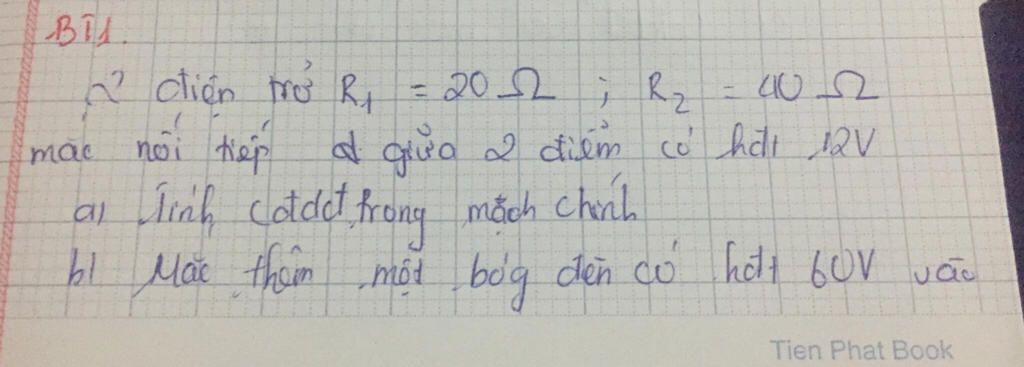 BT1.
2 điện trở R₁ = 20 Ω ; R₂ = 40 Ω
mắc nối tiếp giữa 2 điểm có hđt 12V
a) Tính cđdđ trong mạch chính
b) Mắc thêm một bóg đèn có hđt 60V vào
Tien Phat Book